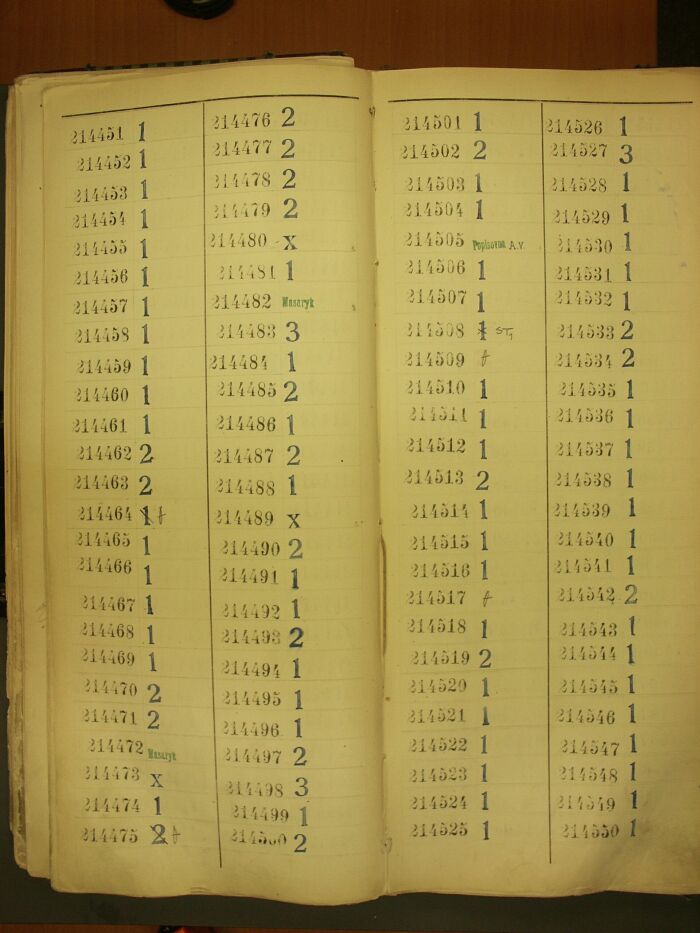 214451 1
214452 1
214453 1
214454 1
214455 1
214456 1
214457 1
214458 1
214459 1
214460 1
214461 1
214462 2
214463 2
214464 1
214465 1
214466 1
214467 1
214468 1
214469 1
214470 2
214471 2
214472 Masaryk
214473 x
214474 1
214475 2
214476 2
214477 2
214478 2
214479 2
214480 - x
214481 1
214482 Masaryk
214483 3
214484 1
214485 2
214486 1
214487 2
214488 1
214489 x
214490 2
214491 1
214492 1
214493 2
214494 1
214495 1
214496 1
214497 2
214498 3
214499 1
214500 2
214501 1
214502 2
214503 1
214504 1
214505 Popisovna A.V.
214506 1
214507 1
214508 1
214509
214510 1
214511 1
214512 1
214513 2
214514 1
214515 1
214516 1
214517
214518 1
214519 2
214520 1
214521 1
214522 1
214523 1
214524 1
214525 1
214526 1
214527 3
214528 1
214529 1
214530 1
214531 1
214532 1
214533 2
214534 2
214535 1
214536 1
214537 1
214538 1
214539 1
214540 1
214541 1
214542 2
214543 1
214544 1
214545 1
214546 1
214547 1
214548 1
214549 1
214550 1